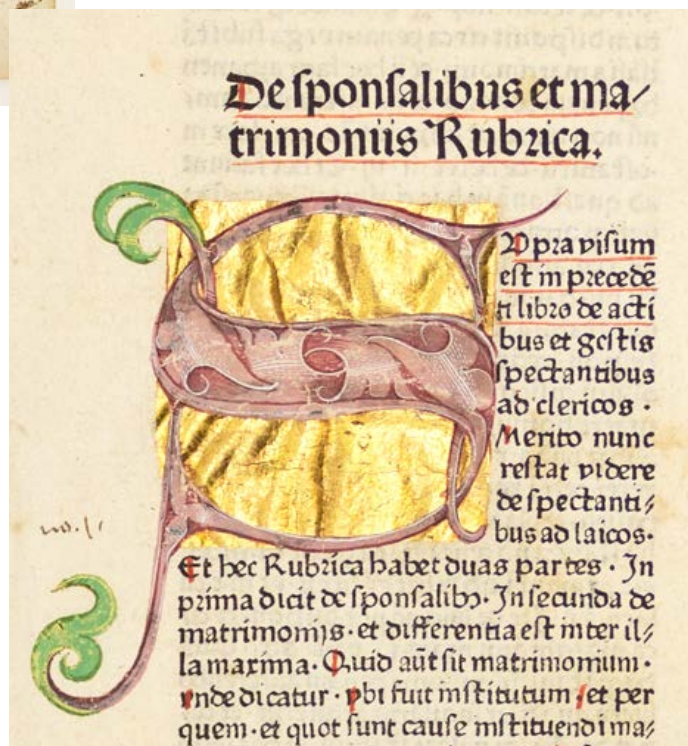 De ſponſalibus et ma/
trimoniis Rubrica.
SUpra viſum
eſt in precedē
ti libro de acti
bus et geſtis
ſpectantibus
ad clericos ·
Merito nunc
reſtat videre
de ſpectanti⸗
bus ad laicos·
Et hec Rubrica habet duas partes · In
prima dicit de ſponſalibꝫ· In ſecunda de
matrimonijs · et differentia eſt inter il⸗
la maxima · Quid aūt ſit matrimonium ·
vnde dicatur · vbi fuit inſtitutum · et per
quem · et quot ſunt cauſe inſtituendi ma⸗